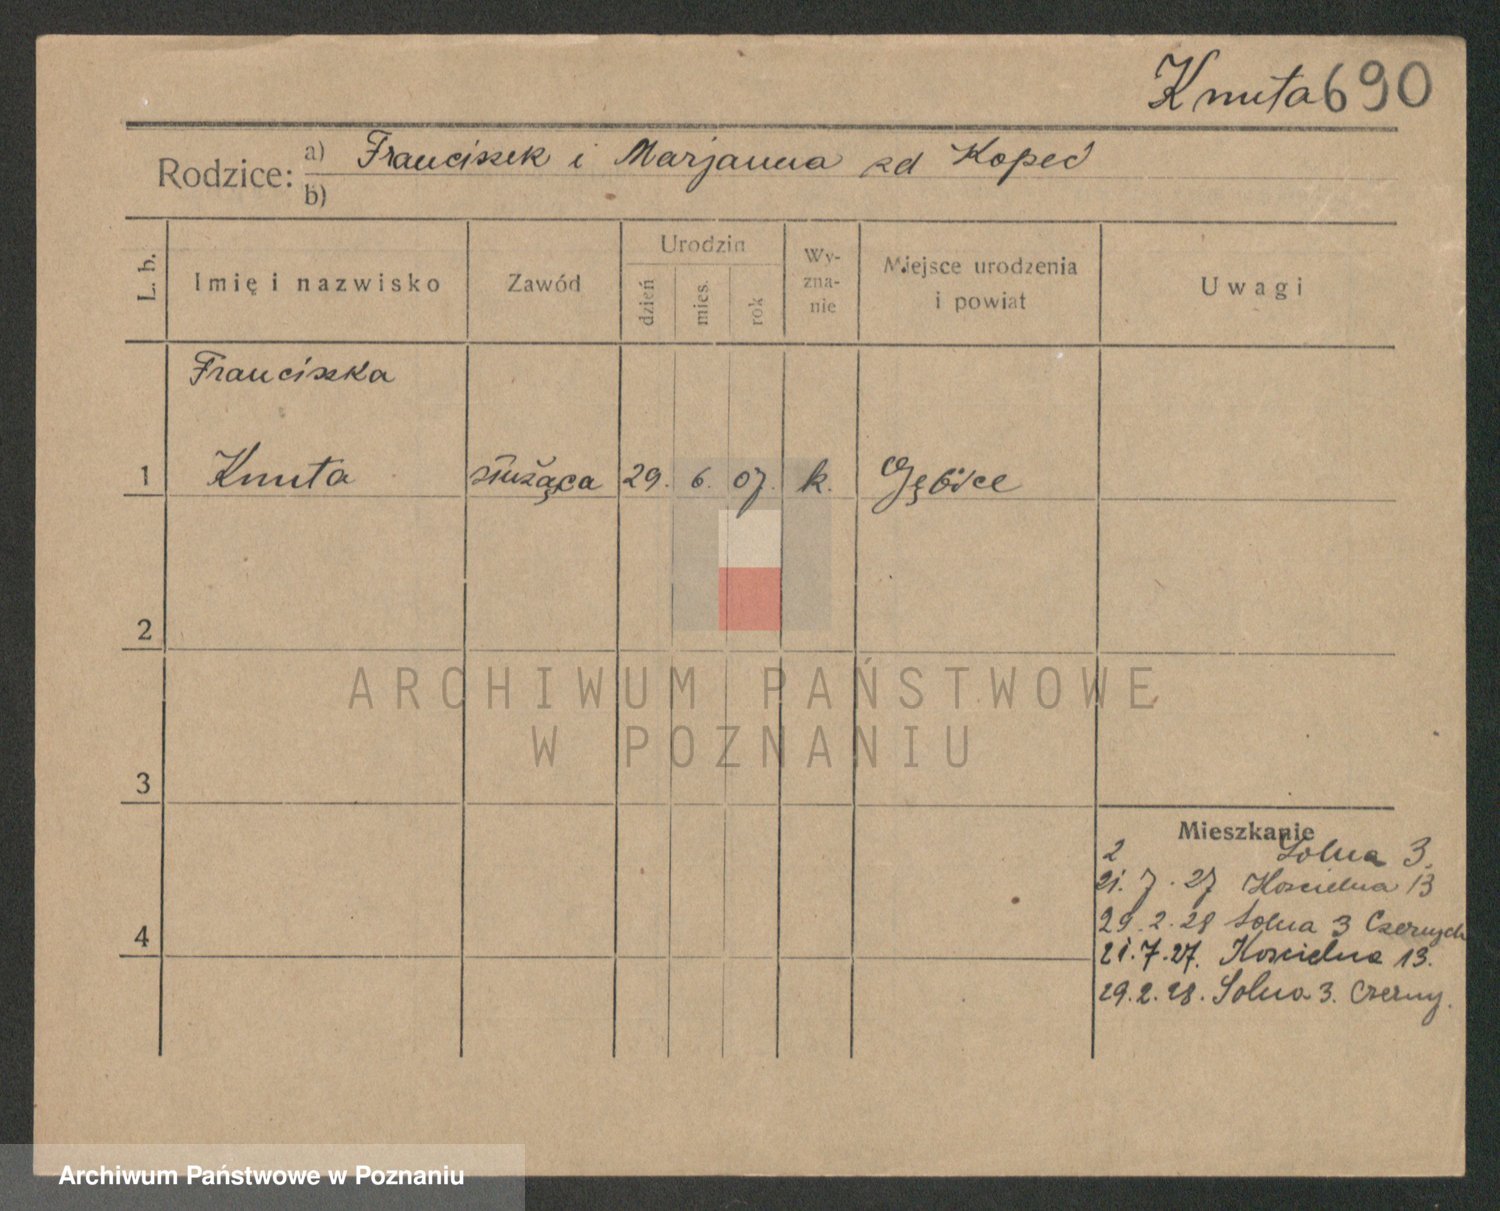 Knuta 690
Rodzice: a) Franciszek i Marjanna zd Kopeć
b)
L. b. Imię i nazwisko Zawód Urodzin dzień mies. rok Wy-zna-nie Miejsce urodzenia i powiat Uwagi
Franciszka
1 Knuta służąca 29. 6. 07. k. Gębice
2
3
4
Mieszkanie
2 Solna 3.
21. 7. 27 Kościelna 13
29. 2. 28 Solna 3 Czernych
21. 7. 27. Kościelna 13.
29. 2. 28. Solna 3. Czerny.
ARCHIWUM PAŃSTWOWE
W POZNANIU
Archiwum Państwowe w Poznaniu